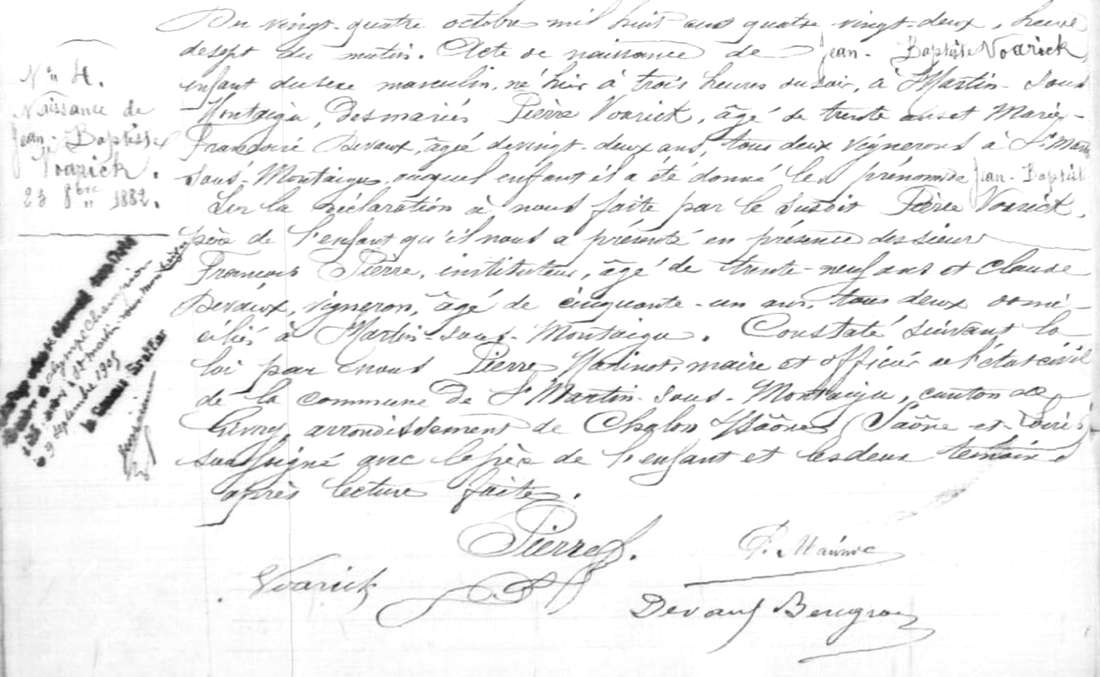 Du vingt-quatre octobre mil huit cent quatre vingt-deux, heure
de sept du matin. Acte de naissance de Jean-Baptiste Voarick
enfant du sexe masculin, né hier à trois heures du soir, à St Martin-sous
Montaigu, des mariés Pierre Voarick, âgé de trente ans et Marie-
Françoise Devaux, âgée de vingt-deux ans, tous deux vignerons à St Martin
sous-Montaigu, auquel enfant il a été donné les prénoms de Jean-Baptiste
Sur la déclaration à nous faite par le susdit Pierre Voarick,
père de l'enfant qu'il nous a présenté en présence des sieurs
François Pierre, instituteur, âgé de trente-neuf ans et Claude
Devaux, vigneron, âgé de cinquante-un ans, tous deux domi-
ciliés à St Martin-sous-Montaigu. Constaté suivant la
loi par nous Pierre maire et officier de l'état civil
de la commune de St Martin-sous-Montaigu, canton de
Givry, arrondissement de Chalon s/Saône (Saône-et-Loire)
soussigné avec le père de l'enfant et les deux témoins
après lecture faite.
N° 4.
Naissance de
Jean-Baptiste
Voarick.
23 8bre 1882.
Olympe Champion
à St martin-sous-Montaigu
septembre 1905
Pierre
Voarick
Devaux